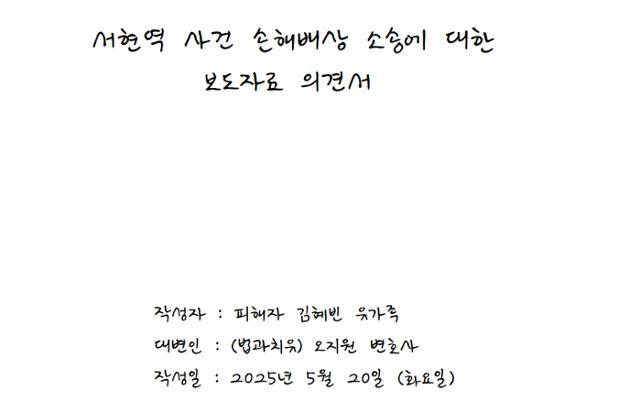 서현역 사건 손해배상 소송에 대한
보도자료 의견서
작성자 : 피해자 김혜빈 유가족
대변인 : (법과치유) 오지원 변호사
작성일 : 2025년 5월 20일 (화요일)